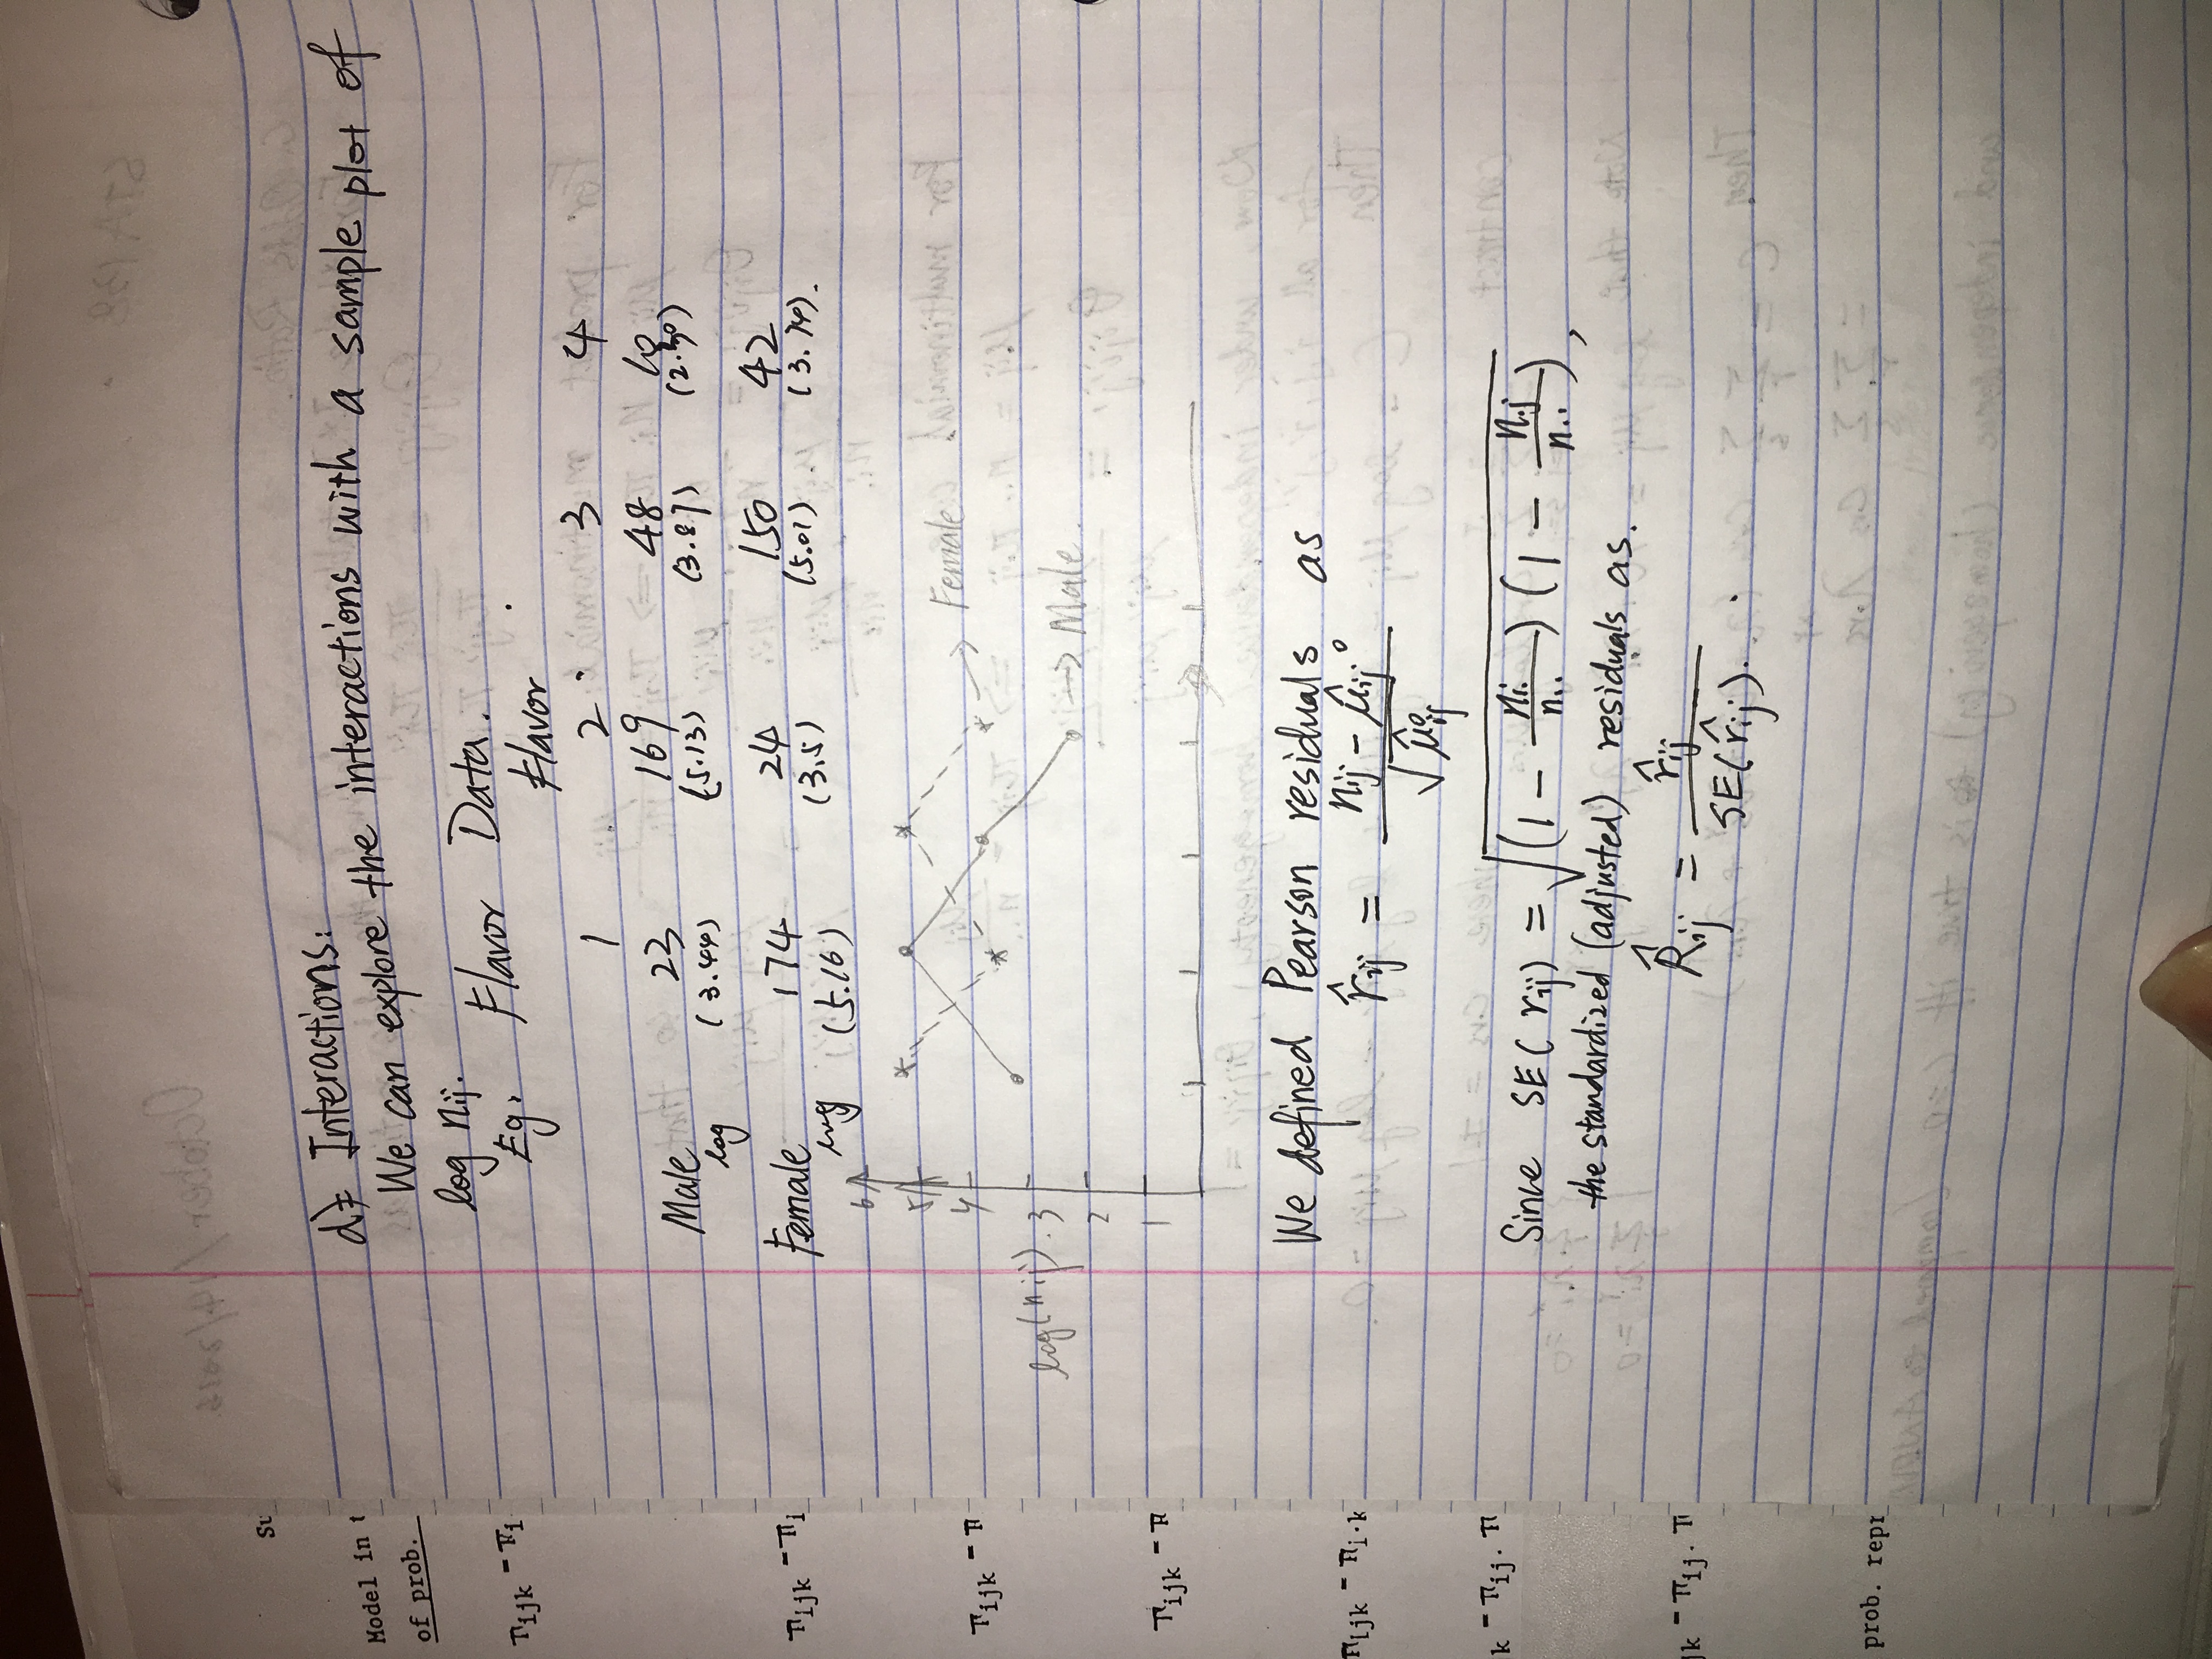 Su
Model in t
of prob.
πijk - πi
πijk - πi
πijk - π
πijk - π
πijk - πi·k
k - πij. π
jk - πij. π
prob. repr
d) Interactions:
We can explore the interactions with a sample plot of
log nij.
Eg. Flavor Data.
Flavor
1 2 3 4
Male 23 169 48 10
log (3.44) (5.13) (3.87) (2.30)
Female 174 24 150 42
log (5.16) (3.5) (5.01) (3.74).
6
5
4
log(nij). 3
2
1
Female
Male.
We defined Pearson residuals as
r̂ij = (nij - μ̂ij°) / √μ̂°ij
Since SE(rij) = √((1 - ni./n..)(1 - n.j/n..)),
the standardized (adjusted) residuals as.
R̂ij = r̂ij / SE(r̂ij).